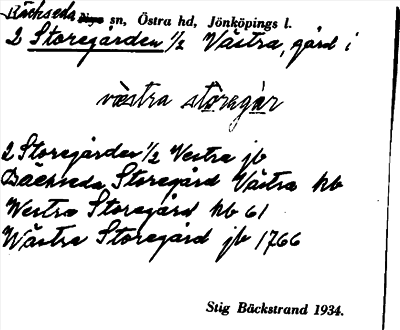 Bäckseda sn, Östra hd, Jönköpings l.
2 Storegården 1/2 Västra, gård i
västra störegår
2 Storegården 1/2 Vestra jb
Bäckseda Storegård Västra hb
Westra Storegård hb 61
Wästra Storegård jb 1766
Stig Bäckstrand 1934.